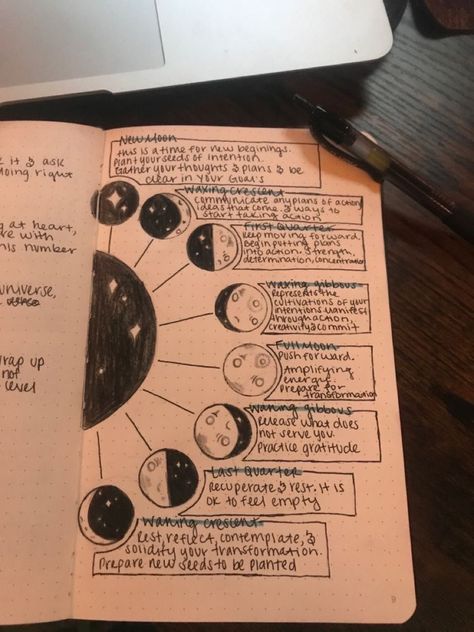 it & ask
doing right
ng at heart,
re with
his number
universe,
wrap up
not
level
New Moon
this is a time for new beginings.
Plant your seeds of intention.
Gather your thoughts & plans & be
clear in your Goal's
Waxing crescent
communicate any plans of action
ideas that come & ways to
start taking action
First Quarter
Keep moving forward.
Begin putting plans
into action. Strength,
determination, concentration
Waxing gibbous
Represents the
cultivations of your
intentions manifest
through action.
creativity & commit
Full Moon
Push forward.
Amplifying
energy.
Prepare for
transformation
Waning gibbous
Release what does
not serve you.
Practice gratitude
Last Quarter
Recuperate & rest. it is
ok to feel empty
Waning crescent
Rest, reflect, contemplate, &
solidify your transformation.
Prepare new seeds to be planted